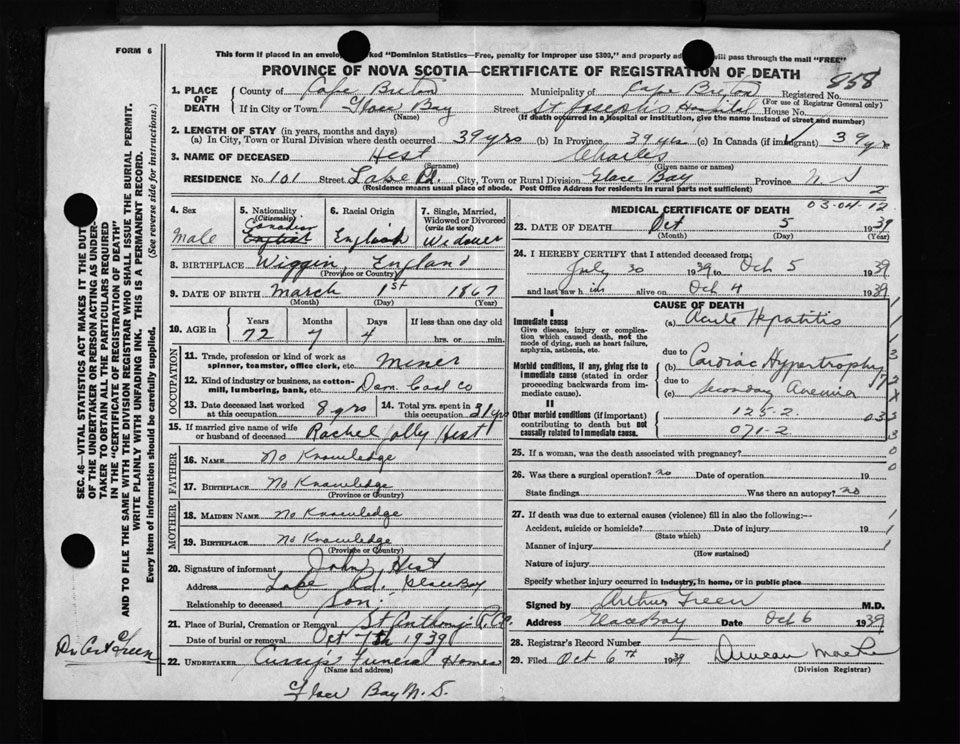 FORM 6
This form if placed in an envelope marked "Dominion Statistics—Free, penalty for improper use $300," and properly addressed will pass through the mail "FREE"
PROVINCE OF NOVA SCOTIA—CERTIFICATE OF REGISTRATION OF DEATH
858
1. PLACE OF DEATH County of Cape Breton Municipality of Cape Breton Registered No.
(For use of Registrar General only)
If in City or Town Glace Bay Street St Joseph's Hospital House No.
(Name) (If death occurred in a hospital or institution, give the name instead of street and number)
2. LENGTH OF STAY (in years, months and days)
(a) In City, Town or Rural Division where death occurred 39 yrs (b) In Province 39 yrs (c) In Canada (if immigrant) 39 yrs
3. NAME OF DECEASED Hest Charles
(Surname) (Given name or names)
RESIDENCE No. 101 Street Lake Rd. City, Town or Rural Division Glace Bay Province N.S
(Residence means usual place of abode. Post Office Address for residents in rural parts not sufficient)
2
03-04-12
4. Sex 5. Nationality (Citizenship) 6. Racial Origin 7. Single, Married, Widowed or Divorced (write the word)
Male Canadian English English Widower
8. BIRTHPLACE Wiggin, England
(Province or Country)
9. DATE OF BIRTH March 1st 1867
(Month) (Day) (Year)
10. AGE in Years Months Days If less than one day old
72 7 4 hrs. or min.
OCCUPATION
11. Trade, profession or kind of work as spinner, teamster, office clerk, etc. Miner
12. Kind of industry or business, as cotton-mill, lumbering, bank, etc. Dom. Coal Co
13. Date deceased last worked at this occupation 8 yrs 14. Total yrs. spent in this occupation 31 yrs
15. If married give name of wife or husband of deceased Rachel Jolly Hest
FATHER
16. NAME No Knowledge
17. BIRTHPLACE No Knowledge
(Province or Country)
MOTHER
18. MAIDEN NAME No Knowledge
19. BIRTHPLACE No Knowledge
(Province or Country)
20. Signature of informant John Hest
Address Lake Rd. Glace Bay
Relationship to deceased Son.
21. Place of Burial, Cremation or Removal St Anthony's R.C.
Date of burial or removal Oct 7th 1939
22. UNDERTAKER Curry's Funeral Homes
(Name and address)
Glace Bay N.S.
MEDICAL CERTIFICATE OF DEATH
23. DATE OF DEATH Oct 5 1939
(Month) (Day) (Year)
24. I HEREBY CERTIFY that I attended deceased from:
July 30 1939 to Oct 5 1939
and last saw him alive on Oct 4 1939
CAUSE OF DEATH
I
Immediate cause (a) Acute Hepatitis
Give disease, injury or complication which caused death, not the mode of dying, such as heart failure, asphyxia, asthenia, etc.
due to
Morbid conditions, if any, giving rise to immediate cause (stated in order proceeding backwards from immediate cause). (b) Cardiac Hypertrophy
due to
(c) Secondary Anemia
II
Other morbid conditions (if important) contributing to death but not causally related to immediate cause.
125-2
071-2
25. If a woman, was the death associated with pregnancy?
26. Was there a surgical operation? no Date of operation 19
State findings Was there an autopsy? no
27. If death was due to external causes (violence) fill in also the following:—
Accident, suicide or homicide? Date of injury 19
(State which)
Manner of injury
(How sustained)
Nature of injury
Specify whether injury occurred in industry, in home, or in public place
Signed by Arthur Green M.D.
Address Glace Bay Date Oct 6 1939
28. Registrar's Record Number
29. Filed Oct 6th 1939 Duncan
(Division Registrar)
SEC. 46—VITAL STATISTICS ACT MAKES IT THE DUTY
OF THE UNDERTAKER OR PERSON ACTING AS UNDERTAKER TO OBTAIN ALL THE PARTICULARS REQUIRED
IN THE "CERTIFICATE OF REGISTRATION OF DEATH"
AND TO FILE THE SAME WITH THE DIVISION REGISTRAR WHO SHALL ISSUE THE BURIAL PERMIT.
WRITE PLAINLY WITH UNFADING INK. THIS IS A PERMANENT RECORD.
Every item of information should be carefully supplied. (See reverse side for instructions.)
Dr. Art Green